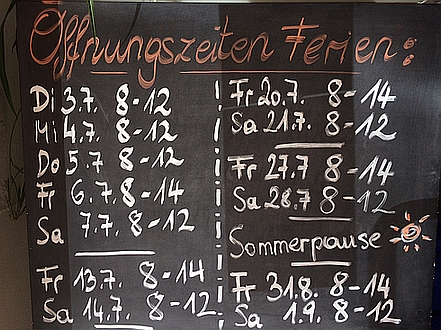 Öffnungszeiten Ferien:
Di 3.7. 8-12
Mi 4.7. 8-12
Do 5.7 8-12
Fr 6.7. 8-14
Sa 7.7. 8-12
Fr 13.7. 8-14
Sa 14.7. 8-12
Fr 20.7. 8-14
Sa 21.7. 8-12
Fr 27.7 8-14
Sa 28.7 8-12
Sommerpause
Fr 31.8. 8-14
Sa 1.9. 8-12